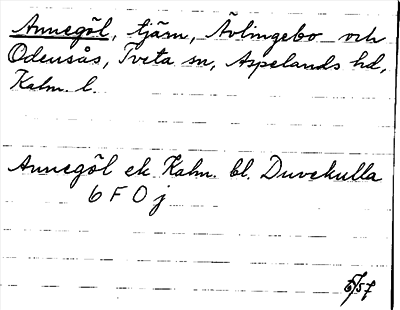 Annegöl, tjärn, Ävlingebo och
Odensås, Tveta sn, Aspelands hd,
Kalm. l.
Annegöl ek. Kalm. bl. Duvekulla
6 F 0 j
5/57